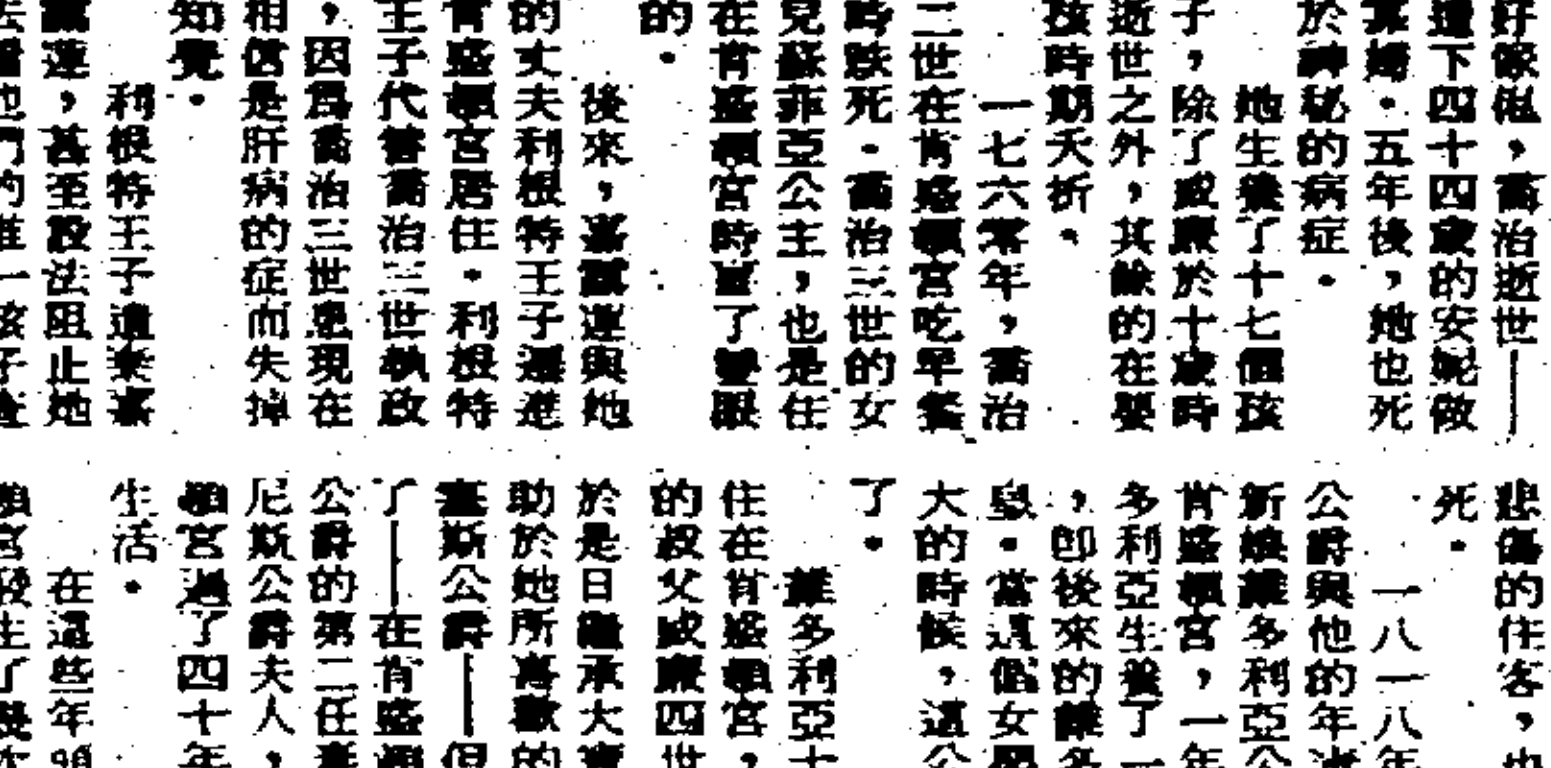 好像似，喬治逝世——
遺下四十四歲的安妮做
寡婦。五年後，她也死
於神秘的病症。
她生養了十七個孩
子，除了威廉於十歲時
逝世之外，其餘的在嬰
孩時期夭折。
一七六零年，喬治
二世在肯盛頓宮吃早餐
時跌死。喬治三世的女
兒蘇菲亞公主，也是住
在肯盛頓宮時盲了雙眼
的。
後來，嘉羅蓮與她
的丈夫利根特王子遷進
肯盛頓宮居住。利根特
王子代替喬治三世執政
，因爲喬治三世患現在
相信是肝病的症而失掉
知覺。
利根特王子遺棄嘉
羅蓮，甚至設法阻止她
去看他們的唯一孩子
悲傷的住客，也
死。
一八一八年
公爵與他的年
新娘維多利亞公
肯盛頓宮，一年
多利亞生養了一
，卽後來的維多
皇。當這個女
大的時候，這公
了。
維多利亞十
住在肯盛頓宮，
的叔父威廉四世
於是日繼承大寶
助於她所喜歡的
塞斯公爵——但
了——在肯盛頓
公爵的第二任妻
尼斯公爵夫人，
頓宮過了四十年
生活。
在這些年
頓宮發生了